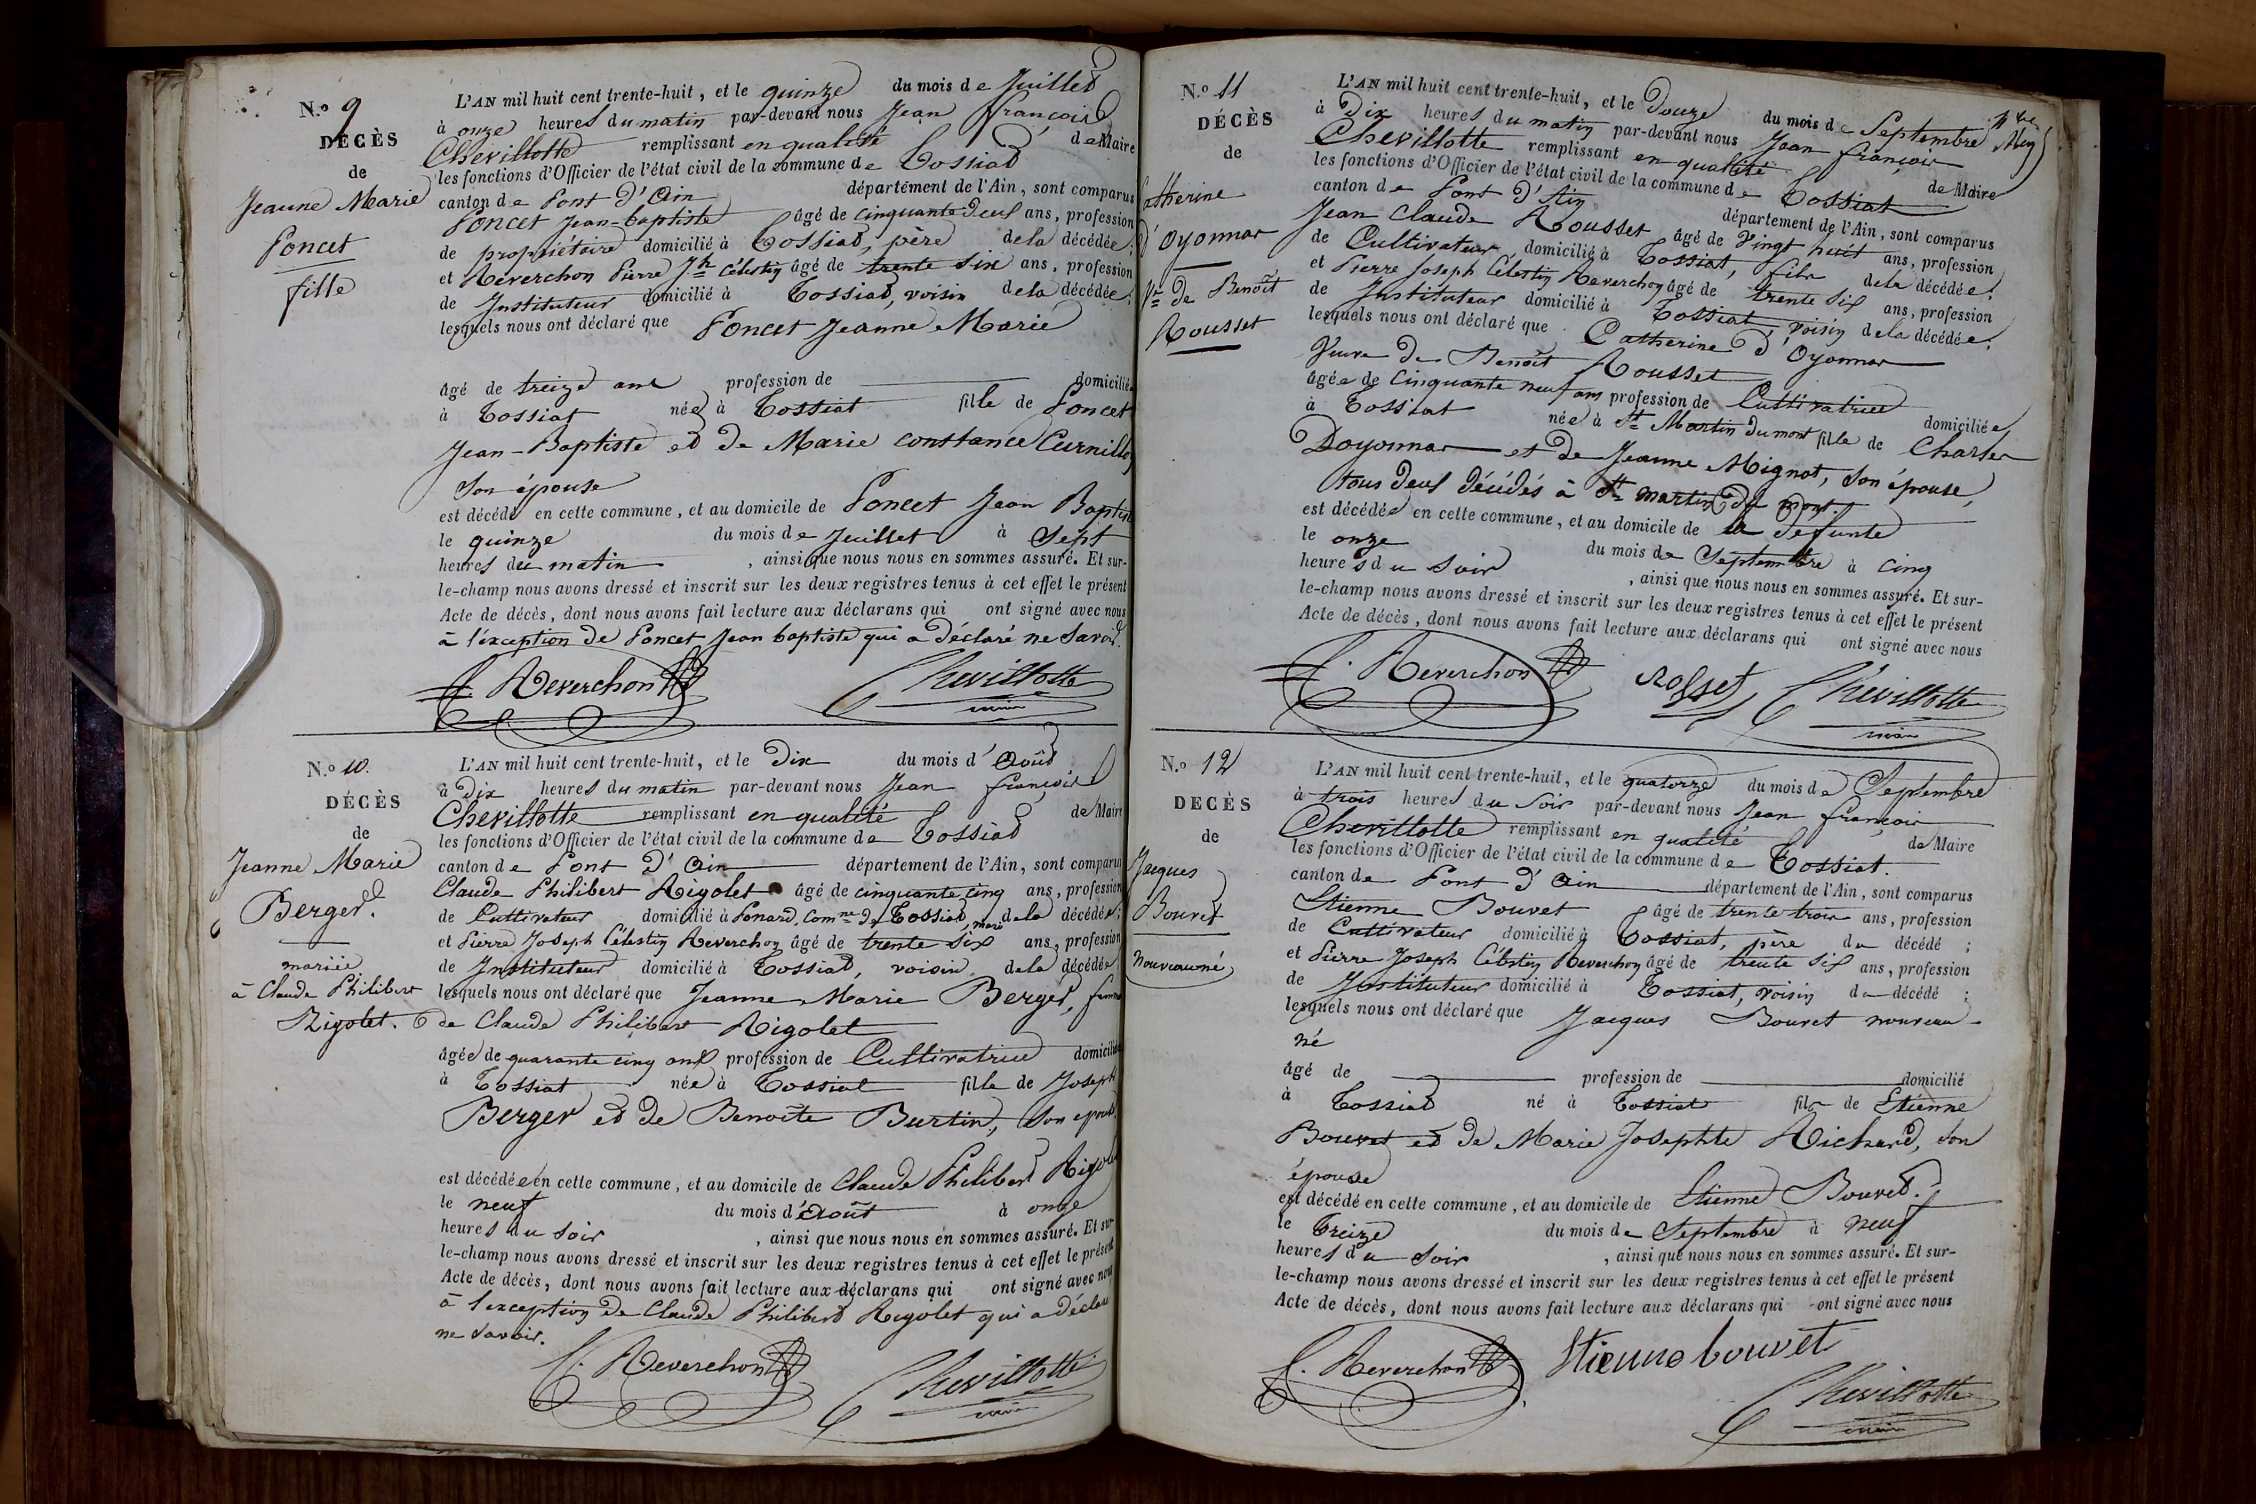 N.o 9
DÉCÈS
de
Jeanne Marie
Poncet
fille
L'AN mil huit cent trente-huit, et le quinze du mois de Juillet
à onze heures du matin par-devant nous Jean françois
Chevillotte remplissant en qualité de Maire
les fonctions d'Officier de l'état civil de la commune de Tossiat
canton de Pont d'Ain département de l'Ain, sont comparus
Poncet Jean-baptiste âgé de cinquante deux ans, profession
de propriétaire domicilié à Tossiat, père de la décédée;
et Reverchon Pierre Jh Célestin âgé de trente six ans, profession
de Instituteur domicilié à Tossiat, voisin de la décédée;
lesquels nous ont déclaré que Poncet Jeanne Marie
âgé de treize ans profession de domiciliée
à Tossiat née à Tossiat fille de Poncet
Jean-Baptiste et de Marie constance Curnillon
son épouse
est décédé en cette commune, et au domicile de Poncet Jean Baptiste
le quinze du mois de Juillet à sept
heures du matin, ainsi que nous nous en sommes assuré. Et sur-
le-champ nous avons dressé et inscrit sur les deux registres tenus à cet effet le présent
Acte de décès, dont nous avons fait lecture aux déclarans qui ont signé avec nous
à l'éxception de Poncet Jean baptiste qui a déclaré ne savoir.
Reverchon Chevillotte
maire
N.o 10.
DÉCÈS
de
Jeanne Marie
Berger.
mariée
à Claude Philibert
Rigolet.
L'AN mil huit cent trente-huit, et le dix du mois d'Août
à dix heures du matin par-devant nous Jean françois
Chevillotte remplissant en qualité de Maire
les fonctions d'Officier de l'état civil de la commune de Tossiat
canton de Pont d'Ain département de l'Ain, sont comparus
Claude Philibert Rigolet âgé de cinquante cinq ans, profession
de Cultivateur domicilié à Ponard, Comne de Tossiat, mari de la décédée;
et Pierre Joseph Célestin Reverchon âgé de trente six ans, profession
de Instituteur domicilié à Tossiat, voisin de la décédée
lesquels nous ont déclaré que Jeanne Marie Berger, femme
de Claude Philibert Rigolet
âgée de quarante cinq ans profession de Cultivatrice domiciliée
à Tossiat née à Tossiat fille de Joseph
Berger et de Benoîte Burtin, son epouse
est décédée en cette commune, et au domicile de Claude Philibert Rigolet
le neuf du mois d'Août à onze
heures du soir, ainsi que nous nous en sommes assuré. Et sur-
le-champ nous avons dressé et inscrit sur les deux registres tenus à cet effet le présent
Acte de décès, dont nous avons fait lecture aux déclarans qui ont signé avec nous
à l'exception de Claude Philibert Rigolet qui a déclaré
ne savoir.
Reverchon Chevillotte
maire
N.o 11
DÉCÈS
de
Catherine
d'Oyonnar
Ve de Benoît
Rousset
L'AN mil huit cent trente-huit, et le Douze du mois de Septembre
à Dix heures du matin par-devant nous Jean françois
Chevillotte remplissant en qualité de Maire
les fonctions d'Officier de l'état civil de la commune de Tossiat
canton de Pont d'Ain département de l'Ain, sont comparus
Jean Claude Rousset âgé de vingt huit ans, profession
de Cultivateur domicilié à Tossiat, fils de la décédée;
et Pierre Joseph Célestin Reverchon âgé de trente six ans, profession
de Instituteur domicilié à Tossiat, voisin de la décédée;
lesquels nous ont déclaré que Catherine d'Oyonnar
Veuve de Benoît Rousset
âgée de cinquante neuf ans profession de Cultivatrice domiciliée
à Tossiat née à St Martin du mont fille de Charles
Doyonnar et de Jeanne Mignot, son épouse,
tous deux décédés à St martin du mont.
est décédée en cette commune, et au domicile de la défunte
le onze du mois de Septembre à cinq
heures du soir, ainsi que nous nous en sommes assuré. Et sur-
le-champ nous avons dressé et inscrit sur les deux registres tenus à cet effet le présent
Acte de décès, dont nous avons fait lecture aux déclarans qui ont signé avec nous
Reverchon Rosset Chevillotte
maire
N.o 12
DÉCÈS
de
Jacques
Bouvet
nouveau né
L'AN mil huit cent trente-huit, et le quatorze du mois de Septembre
à trois heures du soir par-devant nous Jean françois
Chevillotte remplissant en qualité de Maire
les fonctions d'Officier de l'état civil de la commune de Tossiat.
canton de Pont d'Ain département de l'Ain, sont comparus
Etienne Bouvet âgé de trente trois ans, profession
de Cultivateur domicilié à Tossiat, père du décédé;
et Pierre Joseph Célestin Reverchon âgé de trente six ans, profession
de Instituteur domicilié à Tossiat, voisin du décédé;
lesquels nous ont déclaré que Jacques Bouvet nouveau-
né
âgé de profession de domicilié
à Tossiat né à Tossiat fils de Etienne
Bouvet et de Marie Josephte Richard, son
épouse
est décédé en cette commune, et au domicile de Etienne Bouvet.
le Treize du mois de Septembre à neuf
heures du soir, ainsi que nous nous en sommes assuré. Et sur-
le-champ nous avons dressé et inscrit sur les deux registres tenus à cet effet le présent
Acte de décès, dont nous avons fait lecture aux déclarans qui ont signé avec nous
Reverchon Etienne bouvet
Chevillotte
maire